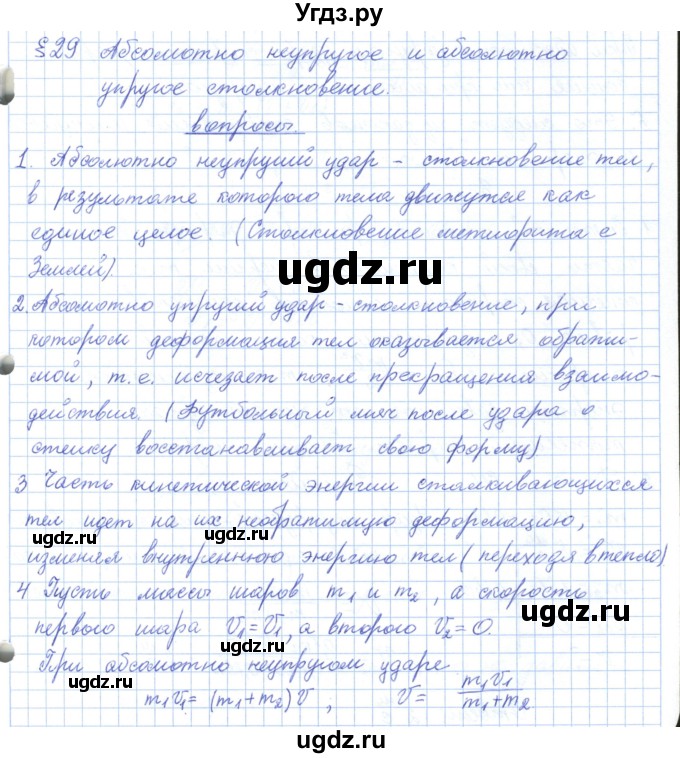 Угдз.ру
§ 29 Абсолютно неупругое и абсолютно
упругое столкновение.
вопросы
1. Абсолютно неупругий удар - столкновение тел,
в результате которого тела движутся как
единое целое. (Столкновение метеорита с
Землёй).
ugdz.ru
2. Абсолютно упругий удар - столкновение, при
котором деформация тел оказывается обрати-
мой, т.е. исчезает после прекращения взаимо-
действия. (Футбольный мяч после удара о
стенку восстанавливает свою форму)
ugdz.ru
3 Часть кинетической энергии сталкивающихся
тел идет на их необратимую деформацию,
ugdz.ru
изменяя внутреннюю энергию тел (переходя в тепло)
4 Пусть массы шаров m₁ и m₂, а скорость
ugdz.ru
первого шара V₁=V₁, а второго V₂=0.
При абсолютно неупругом ударе
ugdz.ru
m₁V₁ = (m₁+m₂)V, V = m₁V₁ / m₁+m₂
ugdz.ru
ugdz.ru